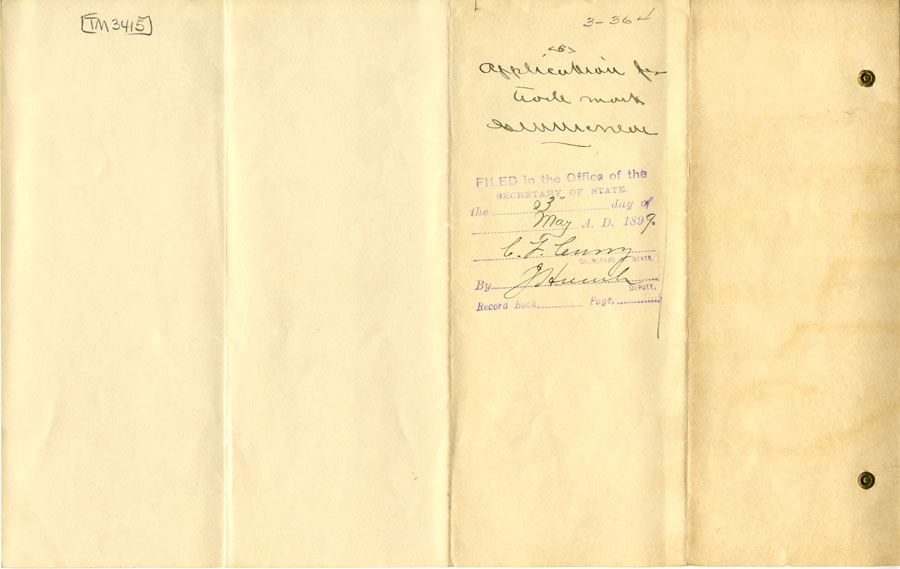 TM3415
3-364
<5>
Application for
trade mark
FILED in the Office of the
SECRETARY OF STATE.
the 23 day of
May A. D. 1899.
C. F. Curry
SECRETARY OF STATE.
By J Hoesch
DEPUTY.
Record Book, Page,